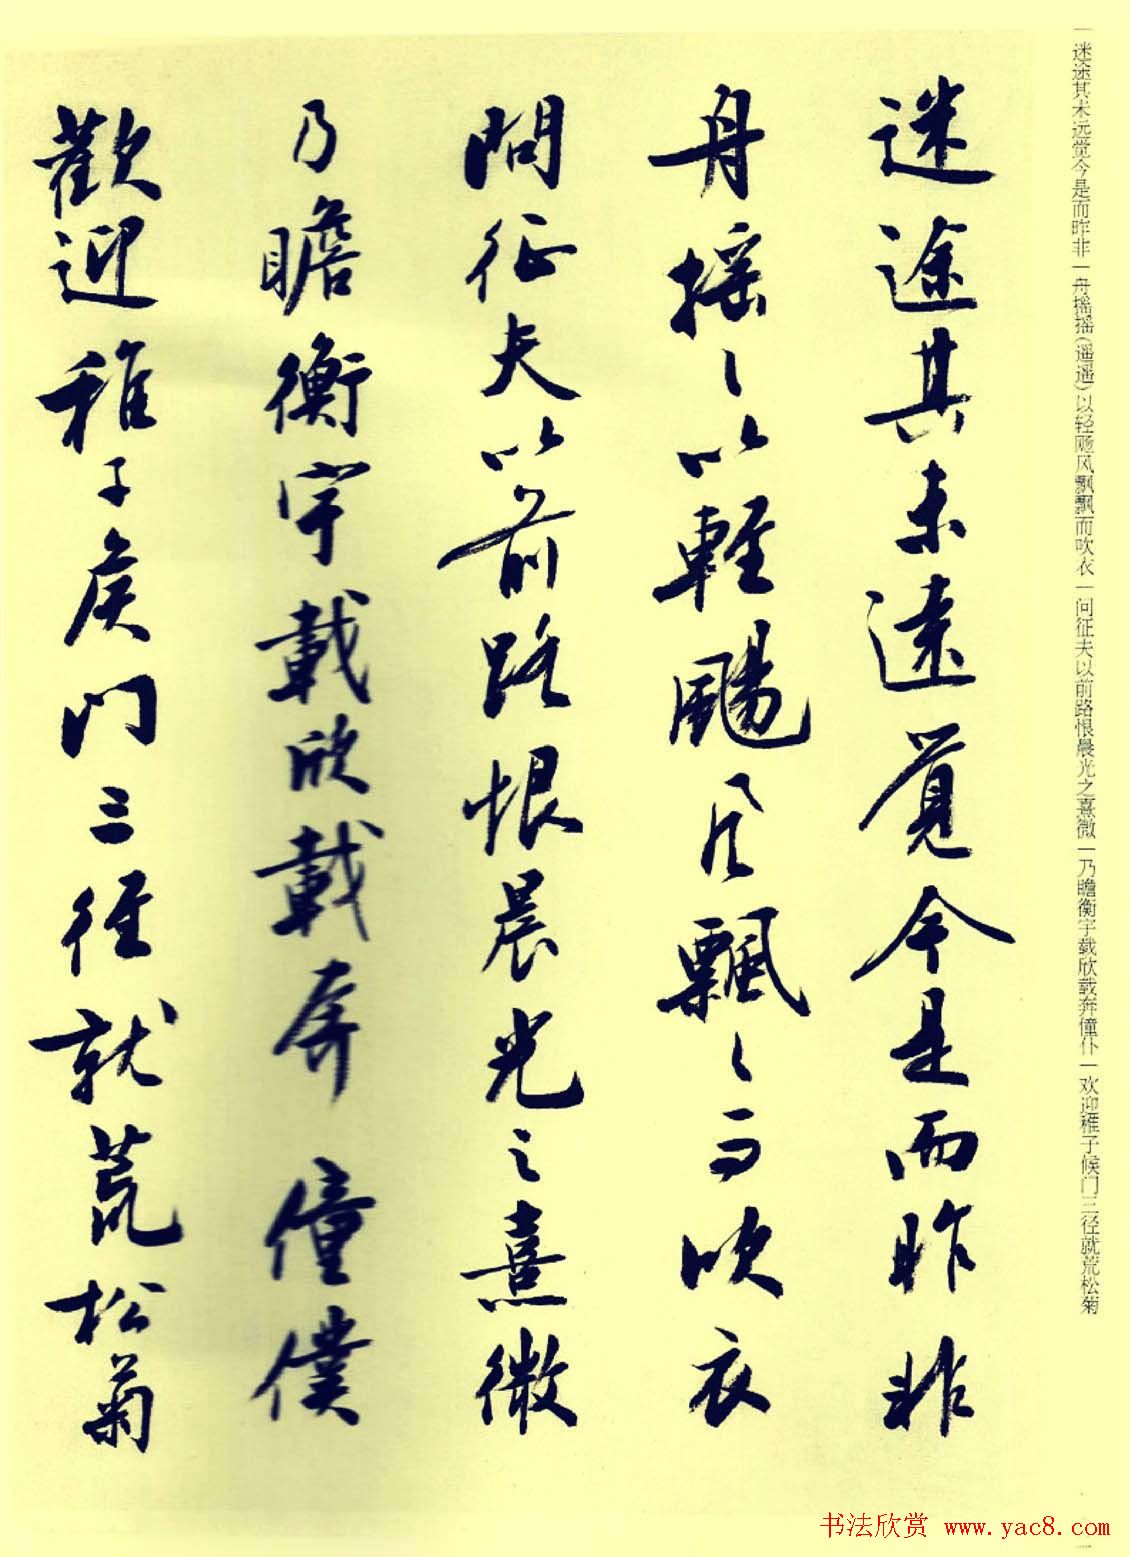 迷途其未遠覺今是而昨非
舟揺〻以輕颺風飄〻而吹衣
問征夫以前路恨晨光之熹微
乃瞻衡宇載欣載奔僮僕
歡迎稚子矦門三徑就荒松菊
一迷途其未远觉今是而昨非一舟摇摇(遥遥)以轻飏风飘飘而吹衣一问征夫以前路恨晨光之熹微一乃瞻衡宇载欣载奔僮仆一欢迎稚子候门三径就荒松菊
书法欣赏 www.yac8.com